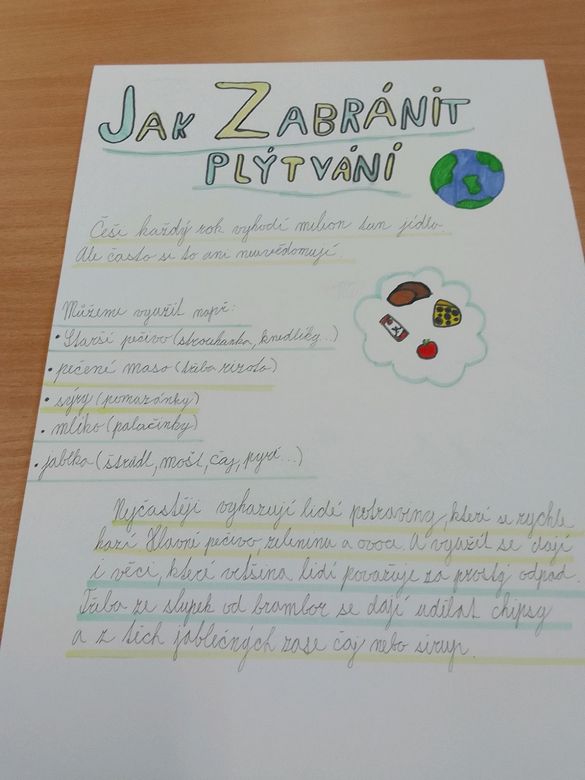 JAK ZABRÁNIT
PLÝTVÁNÍ
Češi každý rok vyhodí milion tun jídla.
Ale často si to ani neuvědomují.
Můžeme využít např:
• Starší pečivo (strouhanka, knedlíky...)
• pečené maso (třeba rizoto)
• sýry (pomazánky)
• mlíko (palačinky)
• jablka (štrůdl, mošt, čaj, pyré...)
Nejčastěji vyhazují lidé potraviny, které se rychle
kazí. Hlavně pečivo, zeleninu a ovoce. A využít se dají
i věci, které většina lidí považuje za prostý odpad.
Třeba ze slupek od brambor se dají udělat chipsy
a z těch jablečných zase čaj nebo sirup.